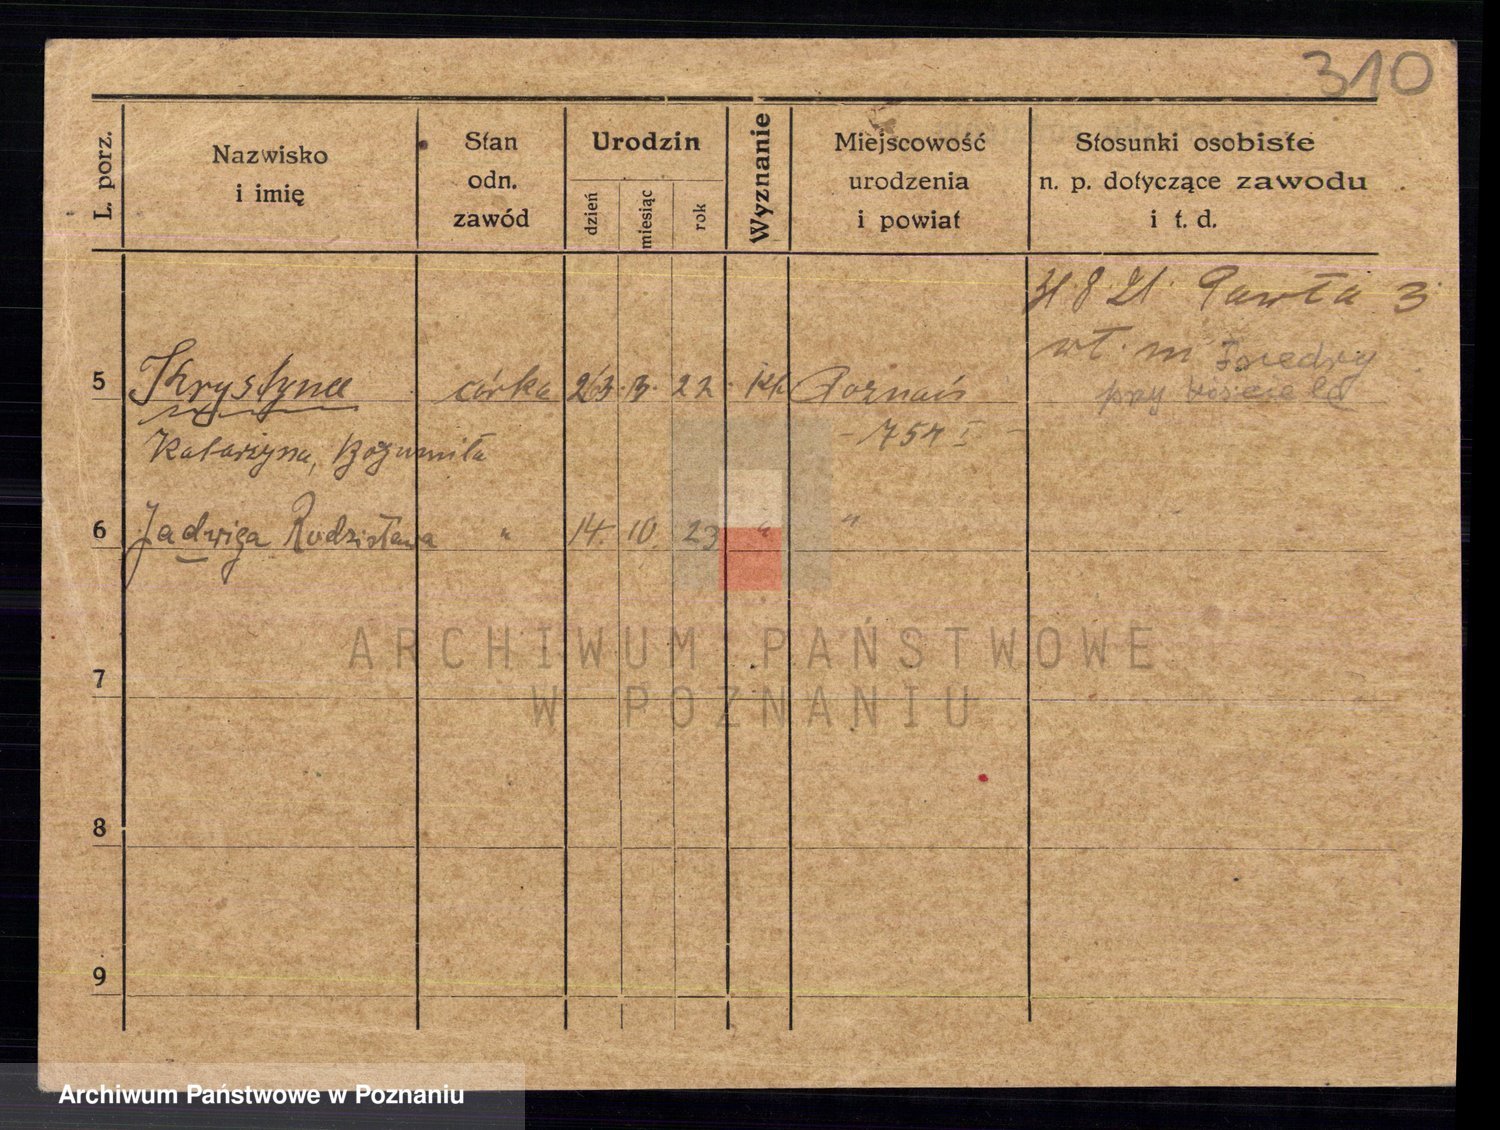 310
L. porz.
Nazwisko
i imię
Stan
odn.
zawód
Urodzin
dzień
miesiąc
rok
Wyznanie
Miejscowość
urodzenia
i powiat
Stosunki osobiste
n. p. dotyczące zawodu
i t. d.
8 21 Pawła 3
wł. m
przy kościele
5 Krystyna córka 23. 3. 22 kt. Poznań
- 754 I -
Katarzyna, Bogumiła
6 Jadwiga Radzisława " 14. 10. 23 " "
7
8
9
ARCHIWUM PAŃSTWOWE
W POZNANIU
Archiwum Państwowe w Poznaniu